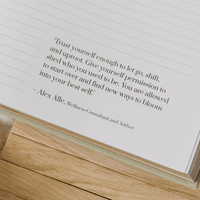 "Trust yourself enough to let go, shift,
and uproot. Give yourself permission to
shed who you used to be. You are allowed
to start over and find new ways to bloom
into your best self."
- Alex Elle, Wellness Consultant and Author